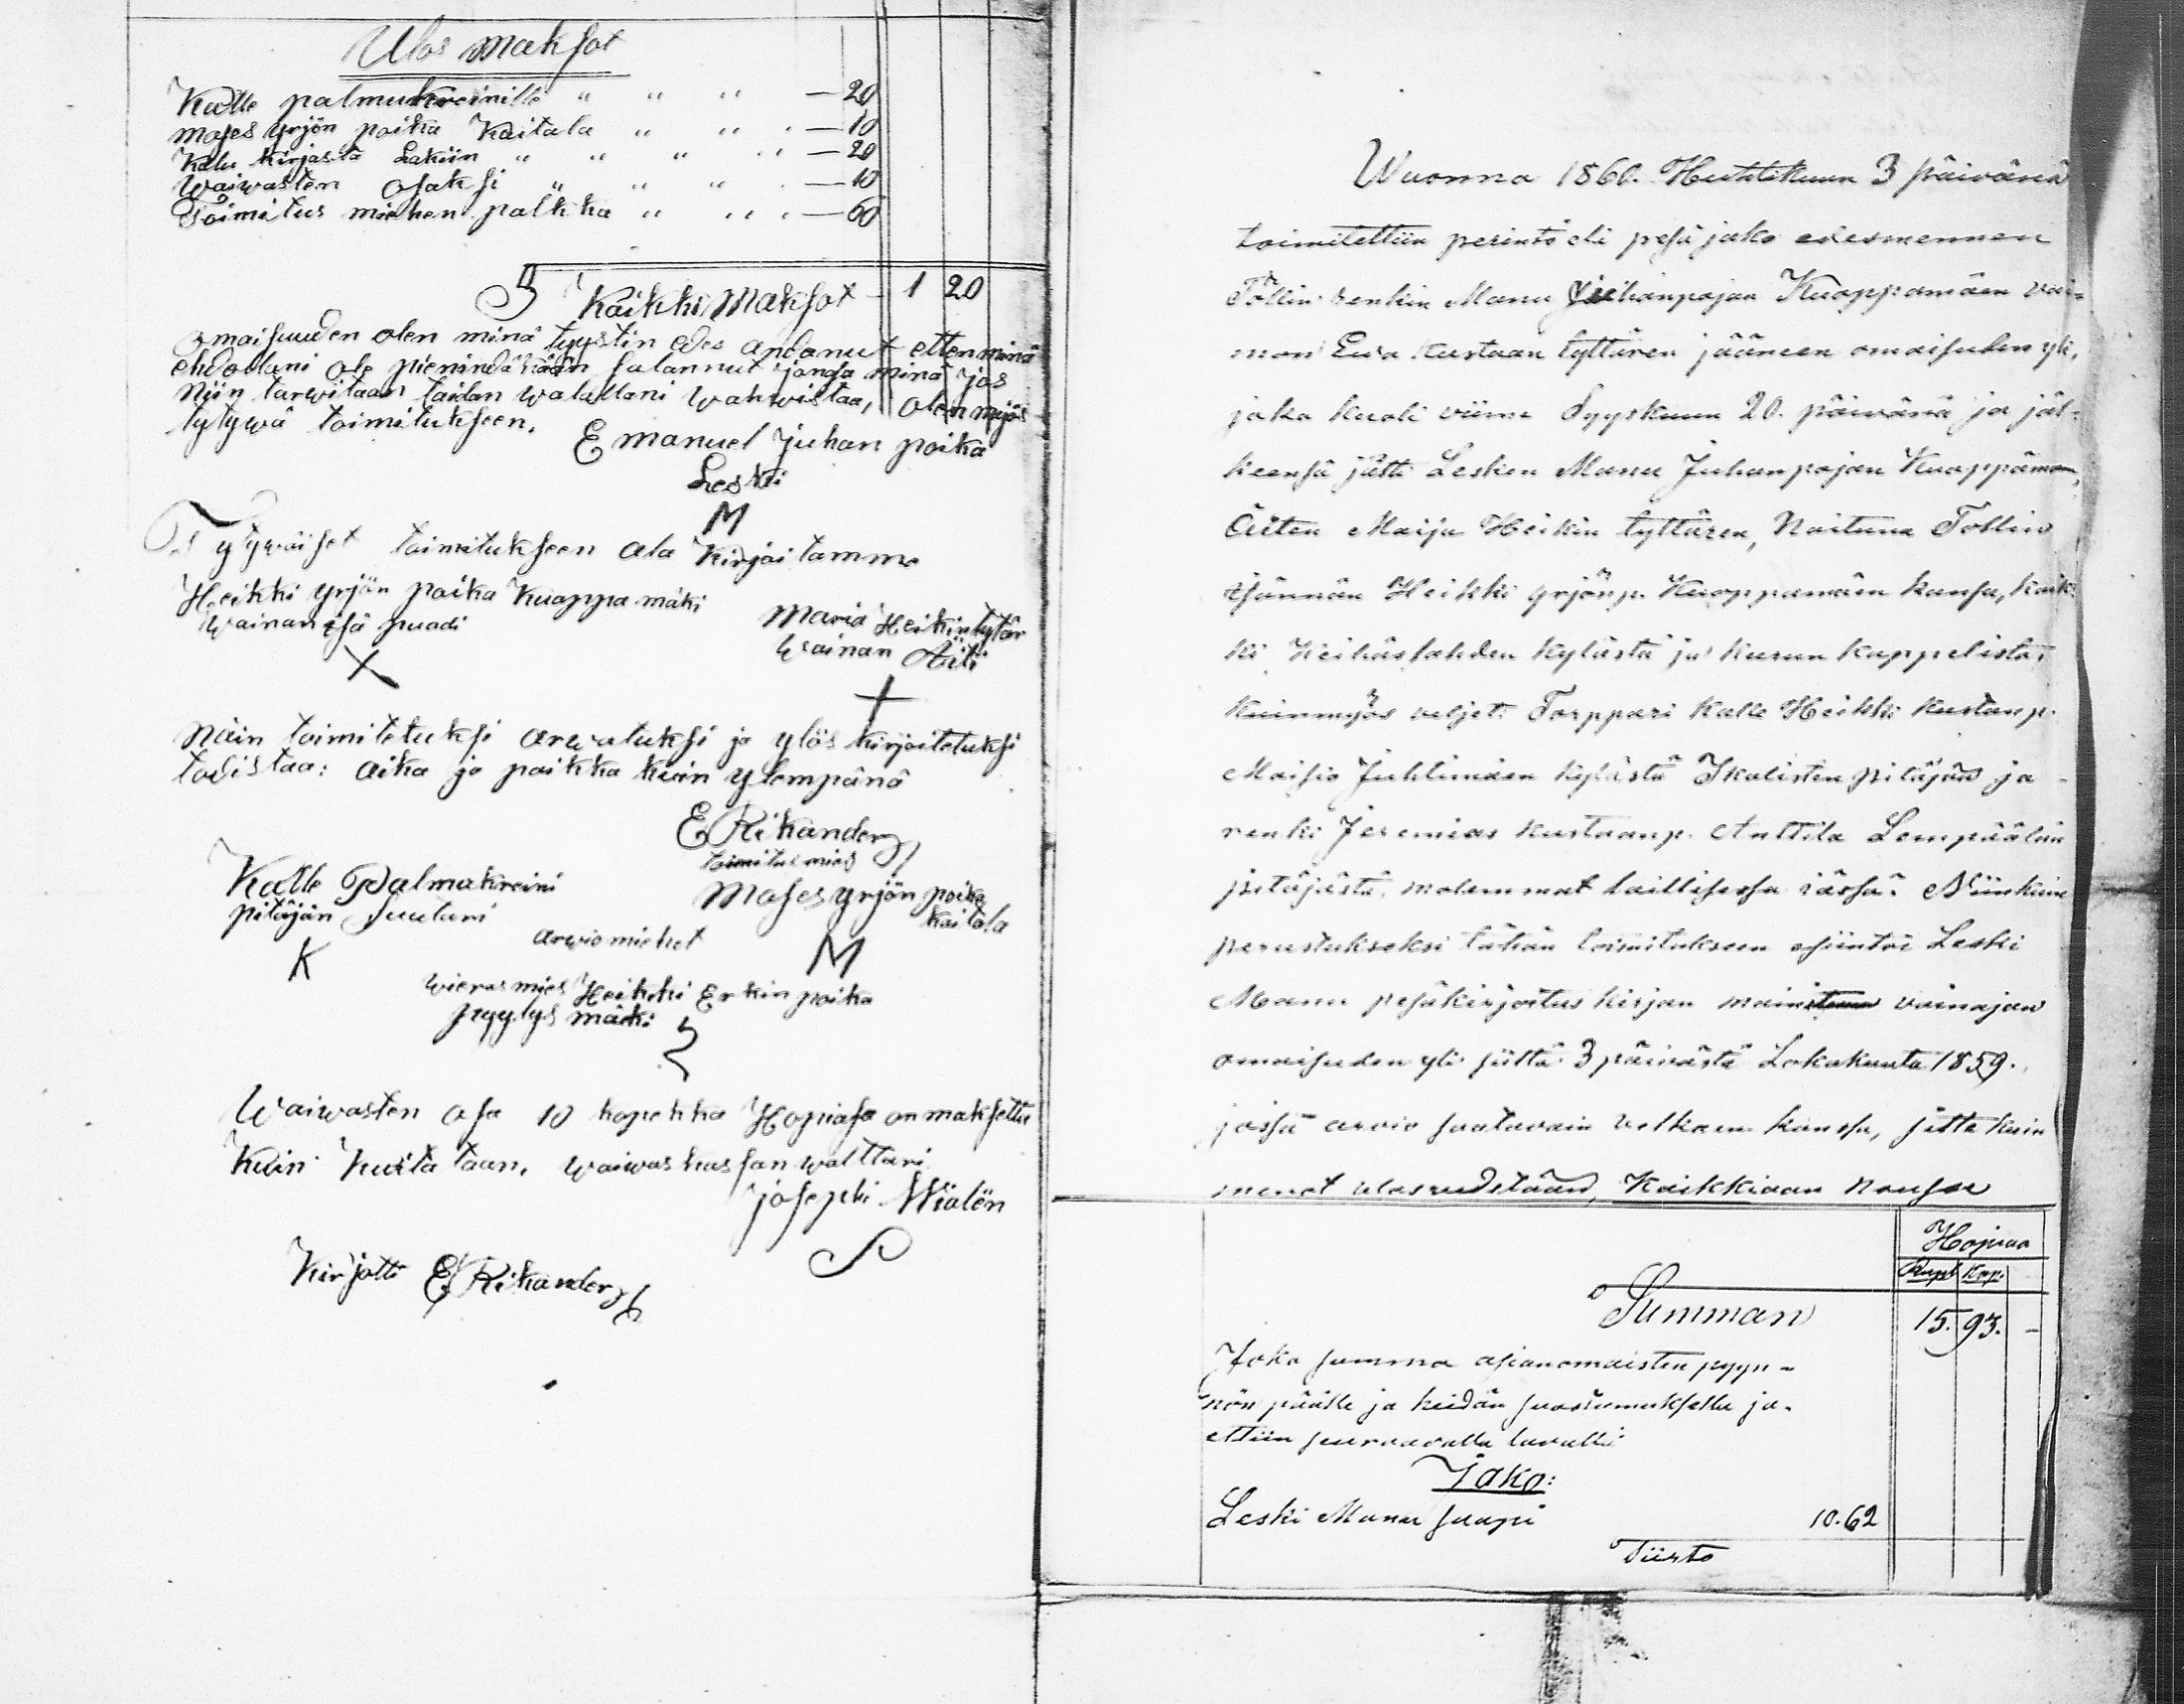 Ulos maksot
Kalle palmukreinille " " " — 20
Moses yrjön poika Kaitala " " " — 10
Kalu kirjasta Lakiin " " " " — 20
Waiwasten osaksi " " " — 10
Toimitus miehen palkka " " " — 60
Kaikki Maksot — 1 20
Omaisuuden olen minä tyystin edes andanut etten minä
ehdollani ole pienindäkään salannut jonga minä jos
niin tarwitaan taidan walallani wahwistaa, olen myös
tytywä toimitukseen.
Emanuel Juhan poika
Leski
M
Tytywäiset toimitukseen ala kirjoitamme
Heikki yrjön poika Kuoppamäki
wainan isä puoli
X
Maria Heikin tytär
wainan Äiti
+
Näin toimitetuksi arwatuksi ja ylös kirjoitetuksi
todistaa: aika ja paikka kuin ylempänä
E Rikander
toimitus mies
Kalle Palmakreini
pitäjän Suutari
K
Moses yrjön poika
Kaitala
M
arwio miehet
wieras mies Heikki Erkin poika
pyylys mäki
Waiwasten osa 10 kopekka Hopiasa on maksettu
Kuin kuitataan. waiwas kassan walttari
Josephi Wialén
Kirjotti E Rikander
Wuonna 1860. Huhtikuun 3 päivänä
toimitettiin perintö eli pesäjako edesmennen
Töllin renkin Manu Juhanpojan Kuoppamäen vai=
mon Ewa Kustaan tyttären jääneen omaisuden yli,
joka kuoli viime Syyskuun 20. päivänä ja jäl=
keensä jätti Lesken Manu Juhanpojan Kuoppämäen,
Äiten Maija Heikin tyttären, Naituna Töllin
isännän Heikki yrjönp. Kuoppamäen kansa, kaik=
ki Keihäslahden kylästä ja Kurun kappelista;
kuinmyös veljet: Torppari Kalle Heikki Kustanp.
Maisio Juhtimäen kylästä Ikalisten pitäjän ja
renki Jeremias Kustaanp. Anttila Lempäälän
pitäjästä, molemmat laillisessa iässä. Niinkuin
perustukseksi tähän toimitukseen esiintoi Leski
Manu pesäkirjoitus kirjan vainajan
omaisuden yli siitä 3 päivästä Lokakuuta 1859.
jossa arvio saatavain velkaen kanssa, sitte kuin
menot ulosvedetään, Kaikkiaan nousee
Hopiaa
Rupl. Kop.
Summan 15. 93. —
Joka summa asianomaisten pyyn=
nön päälle ja heidän suostumuksella ja=
ettiin seuraavalla tavalla
Jako:
Leski Manu saapi 10.62
Siirto